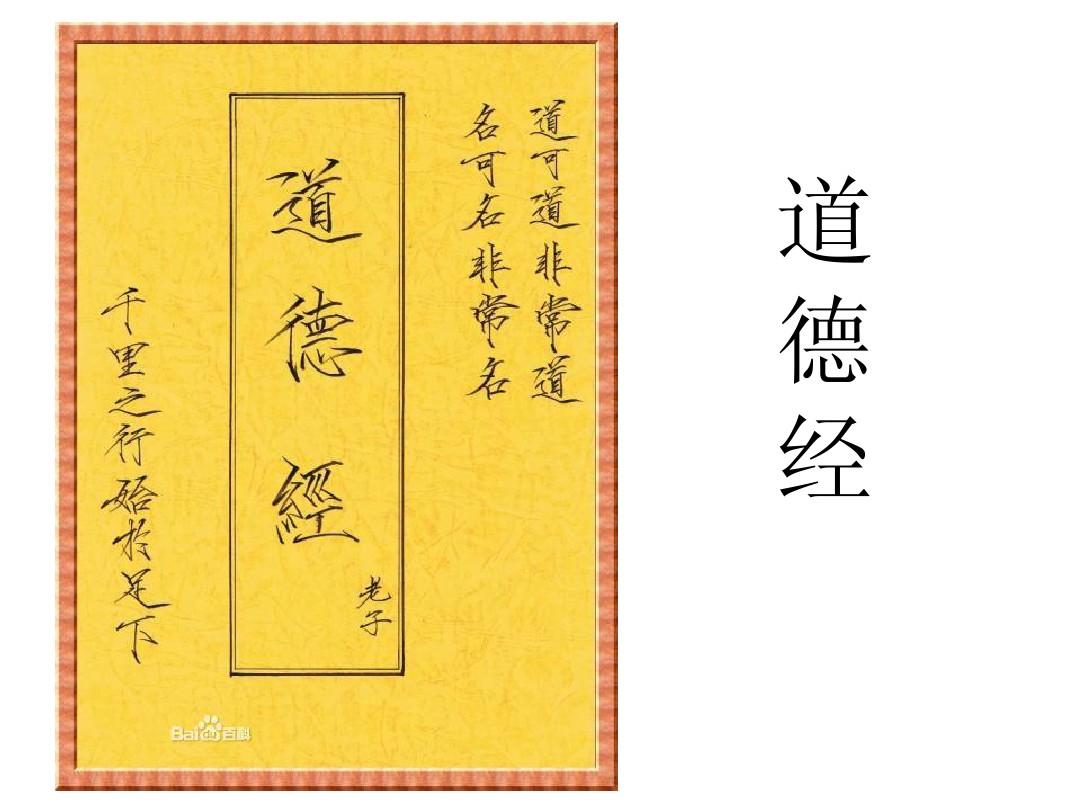 道可道非常道
名可名非常名
道德經
老子
千里之行始於足下
Baidu百科
道德经